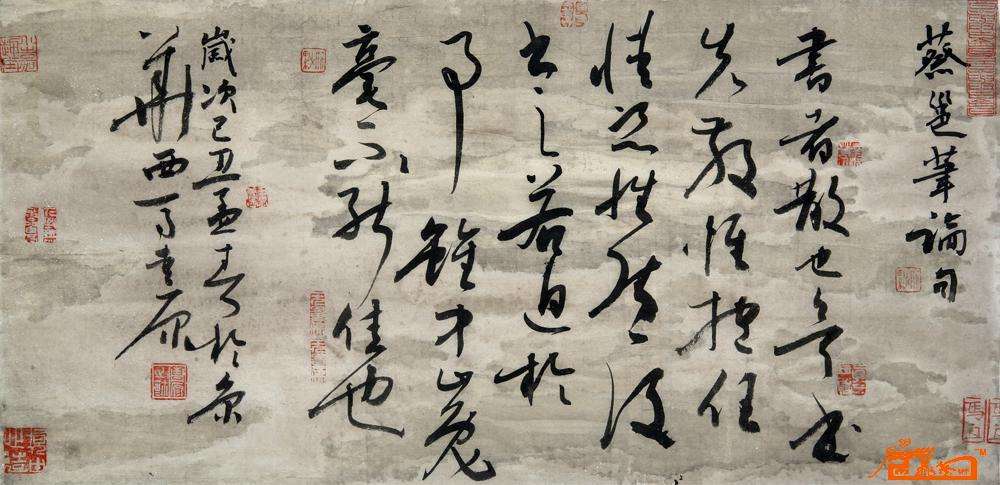 蔡邕筆論句
書者散也欲書
先散懷抱任
情恣性然後
書之若迫於
事雖中山兔
毫不能佳也
歲次己丑孟春於京
華西